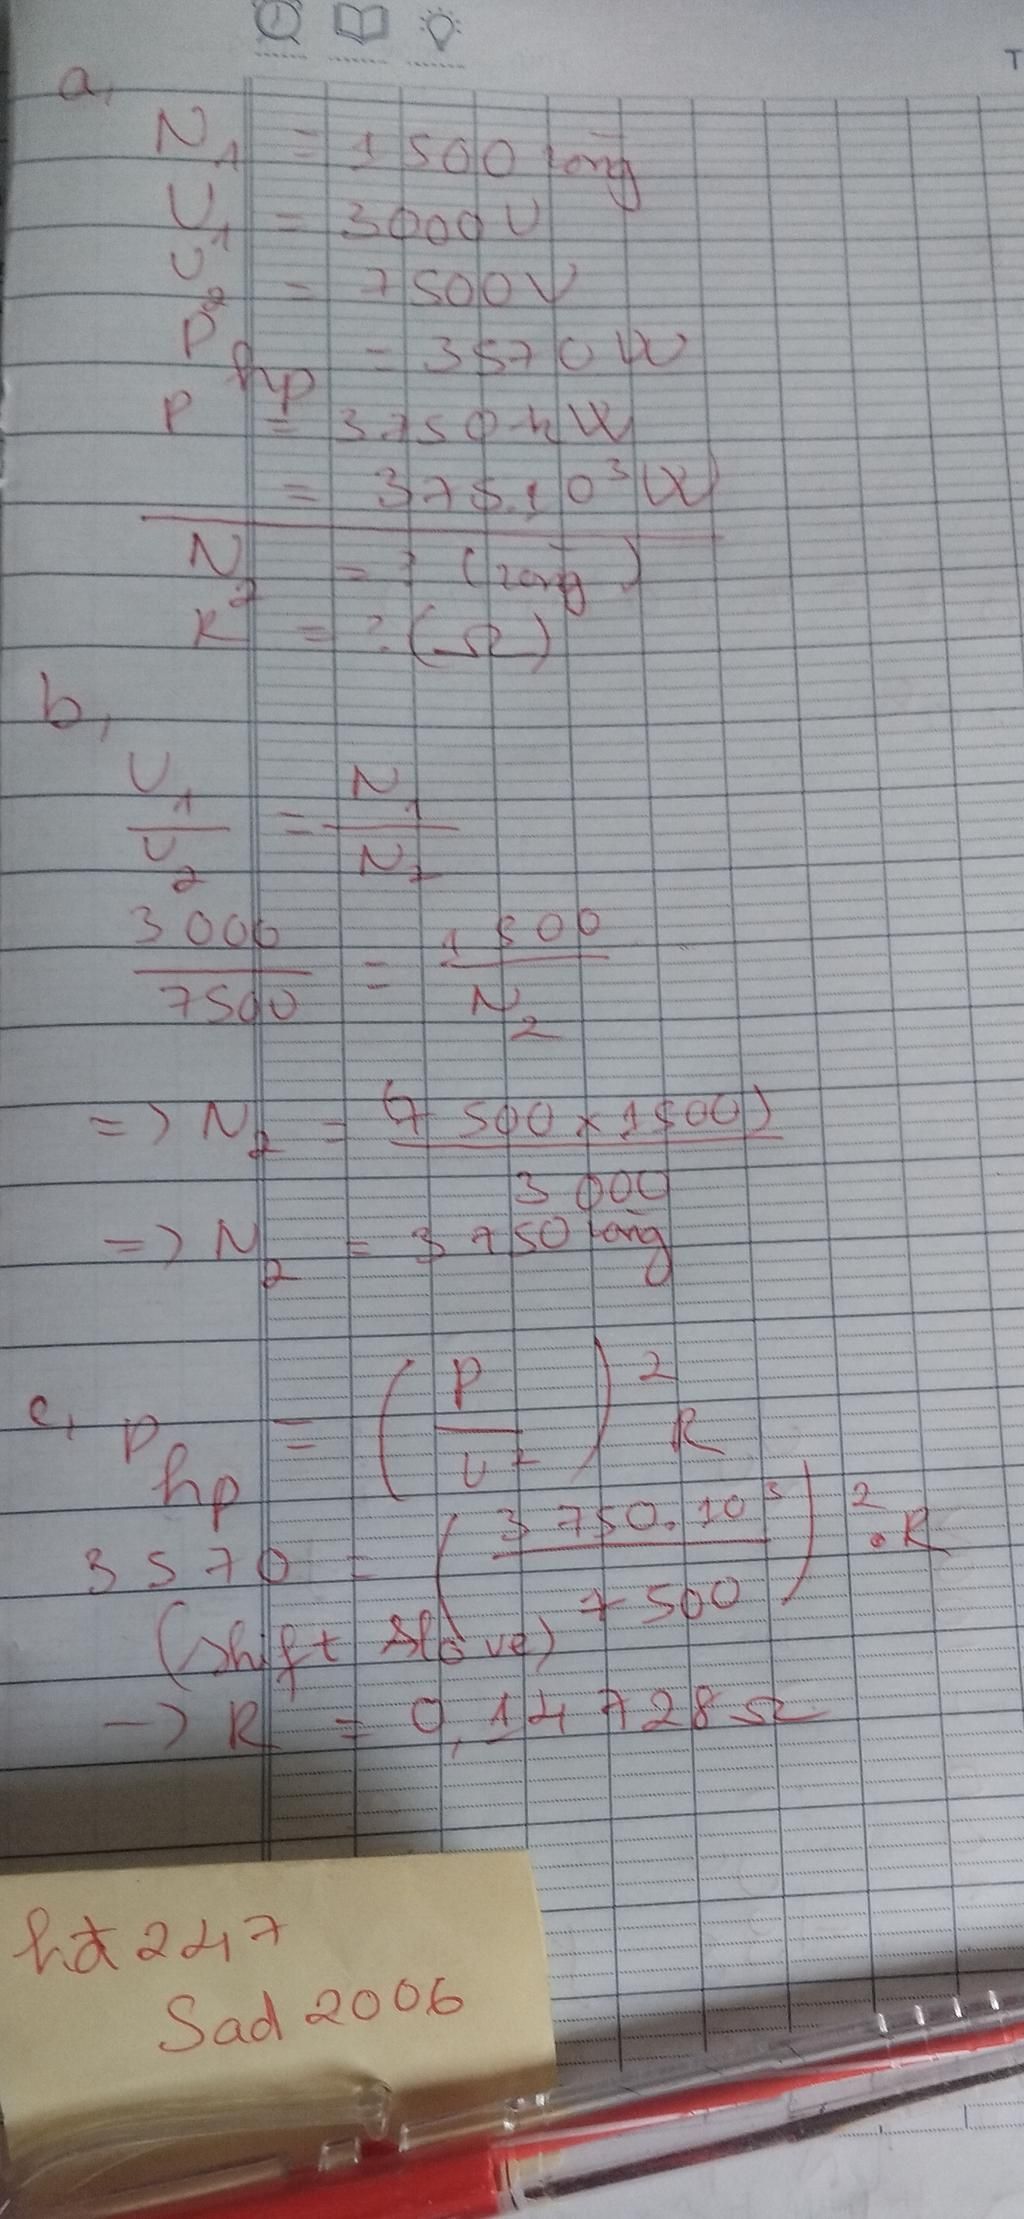 T
a,
N1 = 1500 vòng
U1 = 3000V
U2 = 7500V
Php = 3570W
P = 3750kW
= 375.10³(W)
N2 = ? (vòng)
R = ? (Ω)
b,
U1/U2 = N1/N2
3000/7500 = 1500/N2
=> N2 = (7500x1500)/3000
=> N2 = 3750 vòng
c, Php = (P/U2)² R
3570 = (3750.10³/7500)² .R
(shift slove)
-> R = 0,14728Ω
247
Sad 2006